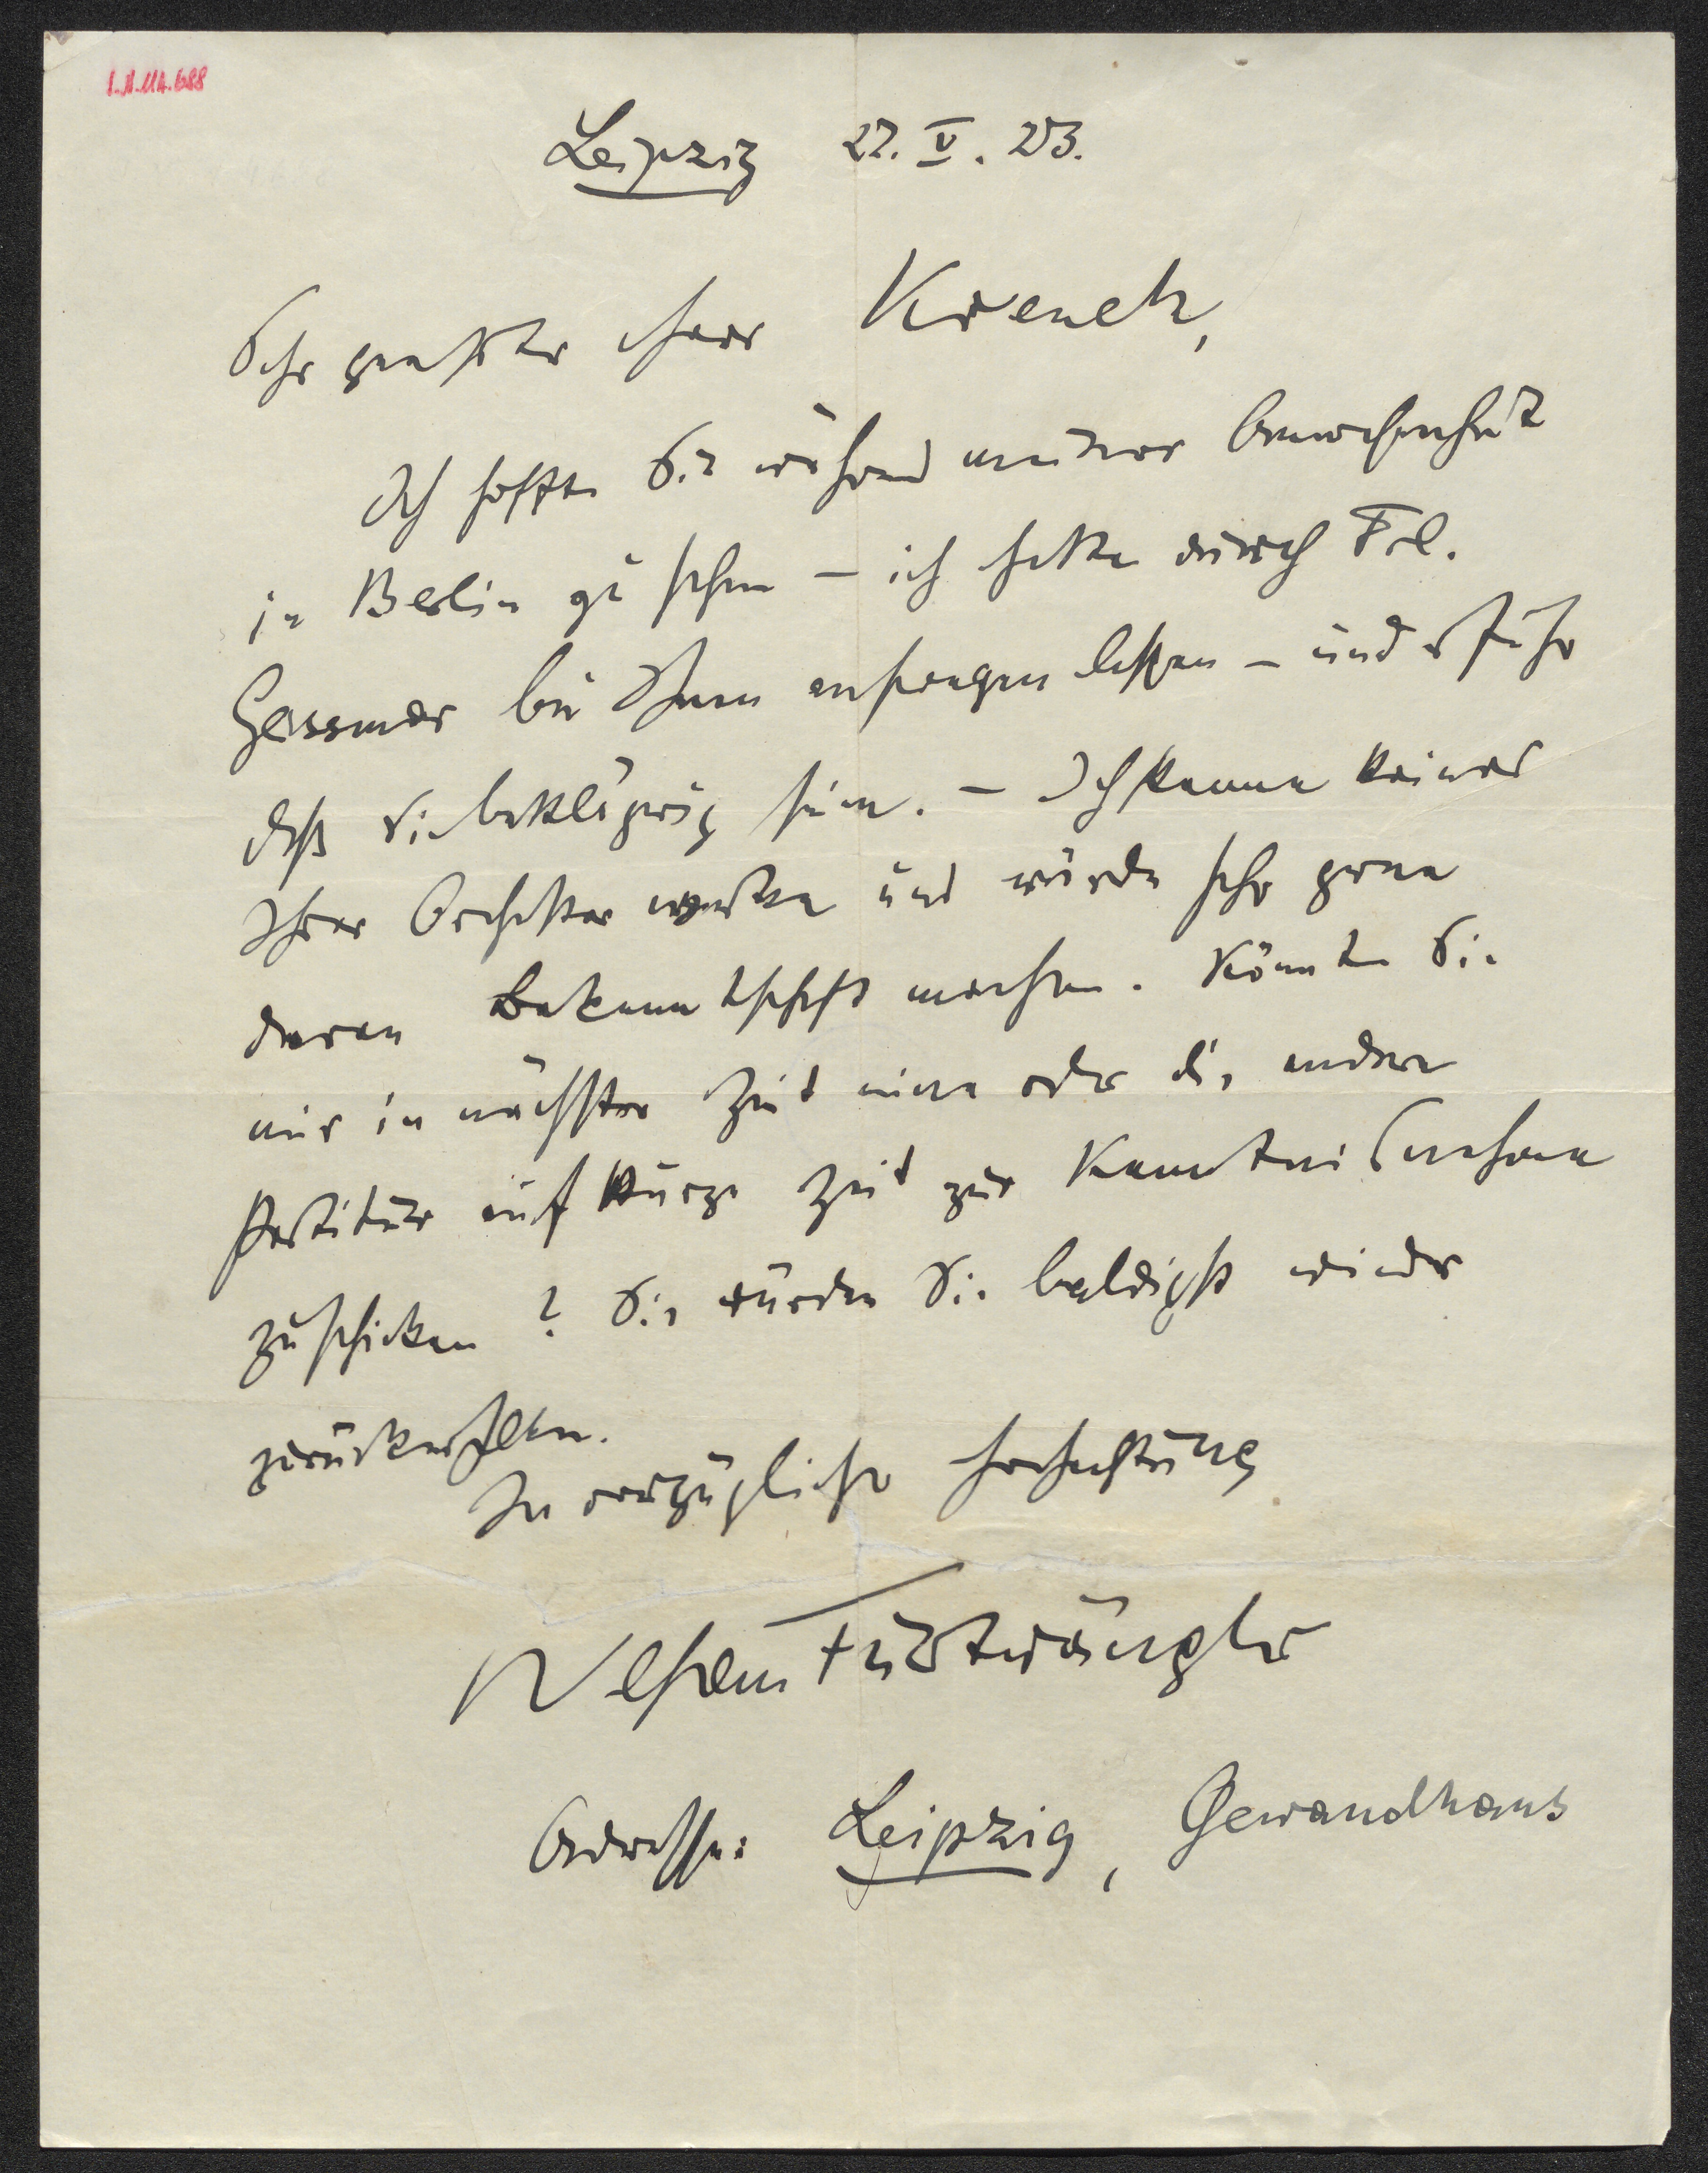 I.N.114.688
Leipzig 22. V. 23.
Sehr geehrter Herr Krenek,
Ich hoffte Sie während meiner Anwesenheit
in Berlin zu sehen – ich hatte durch Frl.
Geissmar bei Ihnen anfragen lassen – und erfuhr
daß Sie bettlägerig seien. – Ich kenne keines
Ihrer Orchesterwerke und würde sehr gerne
deren Bekanntschaft machen. Könnten Sie
mir in nächster Zeit eine oder die andere
Partitur auf kurze Zeit zur Kenntnisnahme
zuschicken? Sie würden Sie baldigst wieder
zurückerhalten.
In vorzüglicher Hochachtung
Wilhelm Furtwängler
Adresse: Leipzig, Gewandhaus